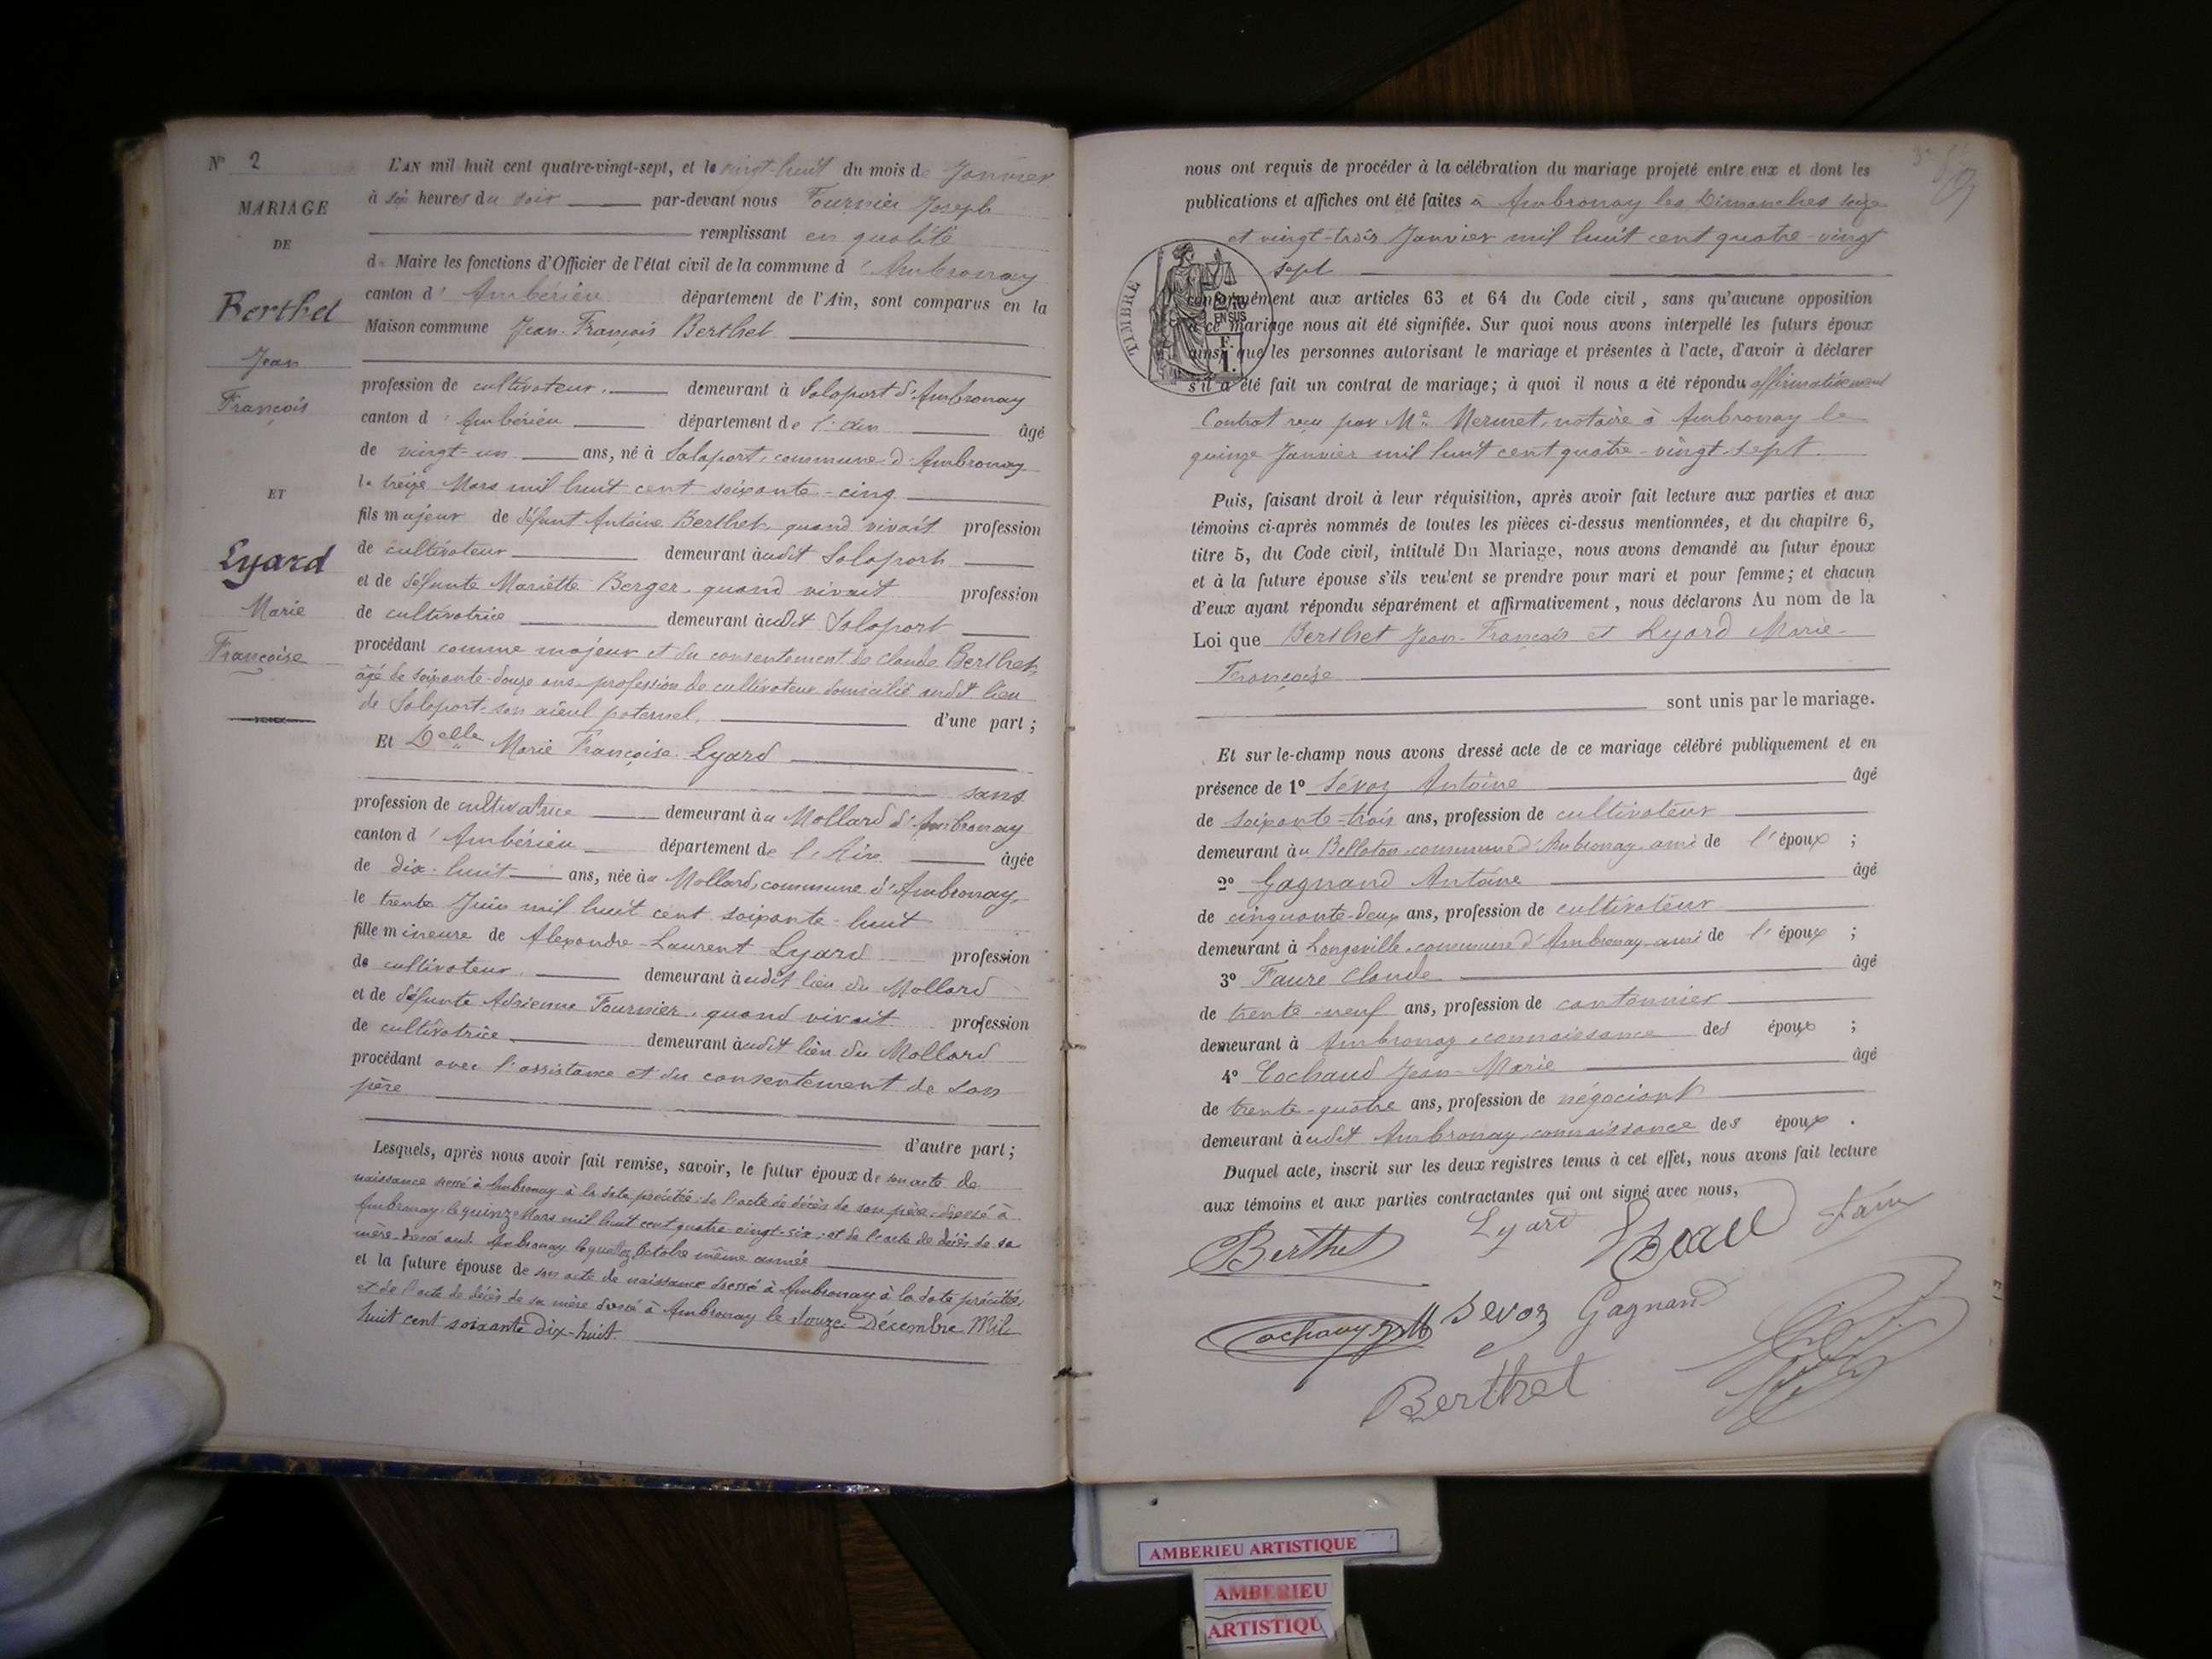 N° 2
MARIAGE
DE
Berthet
Jean
François
ET
Lyard
Marie
Françoise
L'AN mil huit cent quatre-vingt-sept, et le vingt-huit du mois de Janvier
à six heures du soir par-devant nous Fournier Joseph
remplissant en qualité
de Maire les fonctions d'Officier de l'état civil de la commune d'Ambronay
canton d'Ambérieu département de l'Ain, sont comparus en la
Maison commune Jean-François Berthet
profession de cultivateur, demeurant à Salaport d'Ambronay
canton d'Ambérieu département de l'ain âgé
de vingt-un ans, né à Salaport, commune d'Ambronay
le treize Mars mil huit cent soixante-cinq
fils majeur de défunt Antoine Berthet, quand vivait profession
de cultivateur demeurant audit Salaport
et de défunte Mariette Berger, quand vivait profession
de cultivatrice demeurant audit Salaport
procédant comme majeur et du consentement de Claude Berthet,
âgé de soixante-douze ans, profession de cultivateur domicilié audit lieu
de Salaport, son aïeul paternel, d'une part ;
Et Delle Marie Françoise Lyard
sans
profession de cultivatrice demeurant au Mollard d'Ambronay
canton d'Ambérieu département de l'Ain âgée
de dix-huit ans, née au Mollard, commune d'Ambronay,
le trente Juin mil huit cent soixante-huit
fille mineure de Alexandre-Laurent Lyard profession
de cultivateur, demeurant audit lieu du Mollard
et de défunte Adrienne Fournier, quand vivait profession
de cultivatrice demeurant audit lieu du Mollard
procédant avec l'assistance et du consentement de son
père
d'autre part ;
Lesquels, après nous avoir fait remise, savoir, le futur époux de son acte de
naissance dressé à Ambronay à la date précitée, de l'acte de décès de son père dressé à
Ambronay le quinze Mars mil huit cent quatre-vingt-six, et de l'acte de décès de sa
mère dressé aud. Ambronay le Octobre même année
et la future épouse de son acte de naissance dressé à Ambronay à la date précitée,
et de l'acte de décès de sa mère dressé à Ambronay le douze Décembre Mil
huit cent soixante Dix-huit.
nous ont requis de procéder à la célébration du mariage projeté entre eux et dont les
publications et affiches ont été faites à Ambronay les Dimanches seize
et vingt-trois Janvier mil huit cent quatre-vingt
sept
TIMBRE
EN SUS
F.
1.
conformément aux articles 63 et 64 du Code civil, sans qu'aucune opposition
à ce mariage nous ait été signifiée. Sur quoi nous avons interpellé les futurs époux
ainsi que les personnes autorisant le mariage et présentes à l'acte, d'avoir à déclarer
s'il a été fait un contrat de mariage; à quoi il nous a été répondu affirmativement
Contrat reçu par Me Mermet, notaire à Ambronay le
quinze Janvier mil huit cent quatre-vingt-sept.
Puis, faisant droit à leur réquisition, après avoir fait lecture aux parties et aux
témoins ci-après nommés de toutes les pièces ci-dessus mentionnées, et du chapitre 6,
titre 5, du Code civil, intitulé Du Mariage, nous avons demandé au futur époux
et à la future épouse s'ils veulent se prendre pour mari et pour femme; et chacun
d'eux ayant répondu séparément et affirmativement, nous déclarons Au nom de la
Loi que Berthet Jean-François et Lyard Marie-
Françoise
sont unis par le mariage.
Et sur-le-champ nous avons dressé acte de ce mariage célébré publiquement et en
présence de 1° Sévoz Antoine âgé
de soixante-trois ans, profession de cultivateur
demeurant au Bellaton, commune d'Ambronay, ami de l'époux ;
2° Gagnand Antoine âgé
de cinquante-deux ans, profession de cultivateur
demeurant à Longeville, commune d'Ambronay, ami de l'époux ;
3° Faure Claude âgé
de trente-neuf ans, profession de cantonnier
demeurant à Ambronay, connaissance des époux ;
4° Cochaud Jean-Marie âgé
de trente-quatre ans, profession de négociant
demeurant audit Ambronay, connaissance des époux .
Duquel acte, inscrit sur les deux registres tenus à cet effet, nous avons fait lecture
aux témoins et aux parties contractantes qui ont signé avec nous,
Berthet Lyard
Sevoz Gagnand
Berthet
AMBERIEU ARTISTIQUE
AMBERIEU
ARTISTIQU